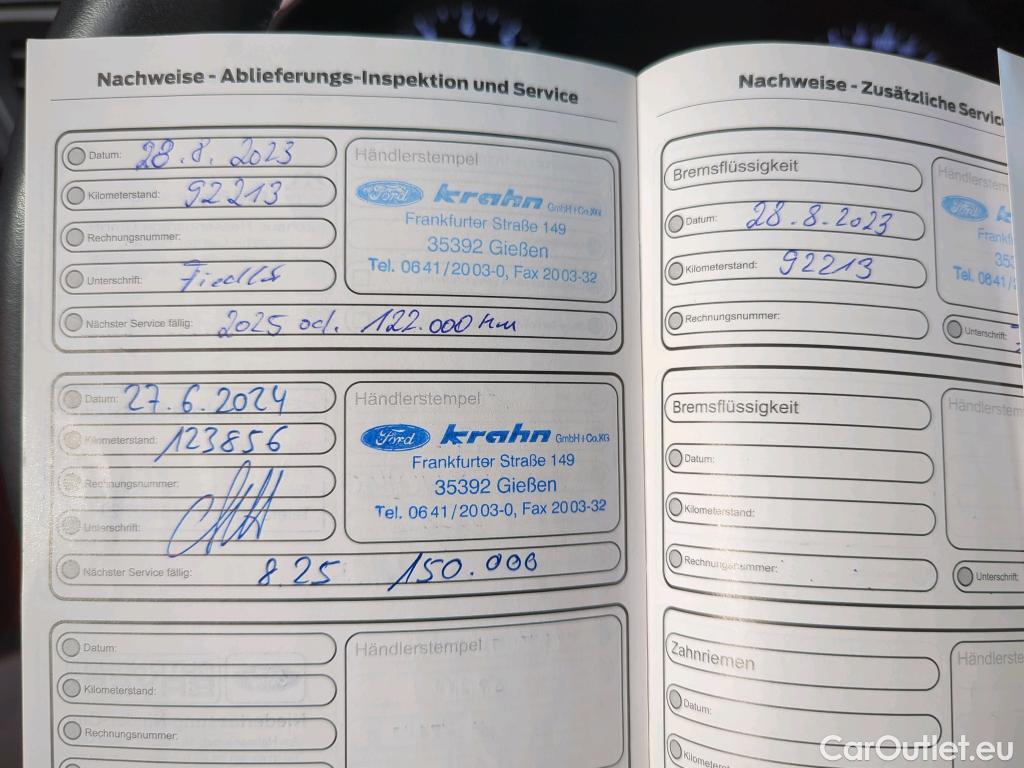 Nachweise - Ablieferungs-Inspektion und Service
Datum: 28.8.2023
Kilometerstand: 92213
Rechnungsnummer:
Unterschrift: Fiedler
Nächster Service fällig: 2025 od. 122.000 km
Händlerstempel
Ford krahn GmbH+Co.KG
Frankfurter Straße 149
35392 Gießen
Tel. 0641/2003-0, Fax 2003-32
Datum: 27.6.2024
Kilometerstand: 123856
Rechnungsnummer:
Unterschrift:
Nächster Service fällig: 8.25 150.000
Händlerstempel
Ford krahn GmbH+Co.KG
Frankfurter Straße 149
35392 Gießen
Tel. 0641/2003-0, Fax 2003-32
Datum:
Kilometerstand:
Rechnungsnummer:
Händlerstempel
Nachweise - Zusätzliche Servic
Bremsflüssigkeit
Datum: 28.8.2023
Kilometerstand: 92213
Rechnungsnummer:
Händlerstem
Ford k
Frankf
353
Tel. 0641/
Unterschrift:
Bremsflüssigkeit
Datum:
Kilometerstand:
Rechnungsnummer:
Händlerstem
Unterschrift:
Zahnriemen
Datum:
Kilometerstand:
Händlerste
CarOutlet.eu